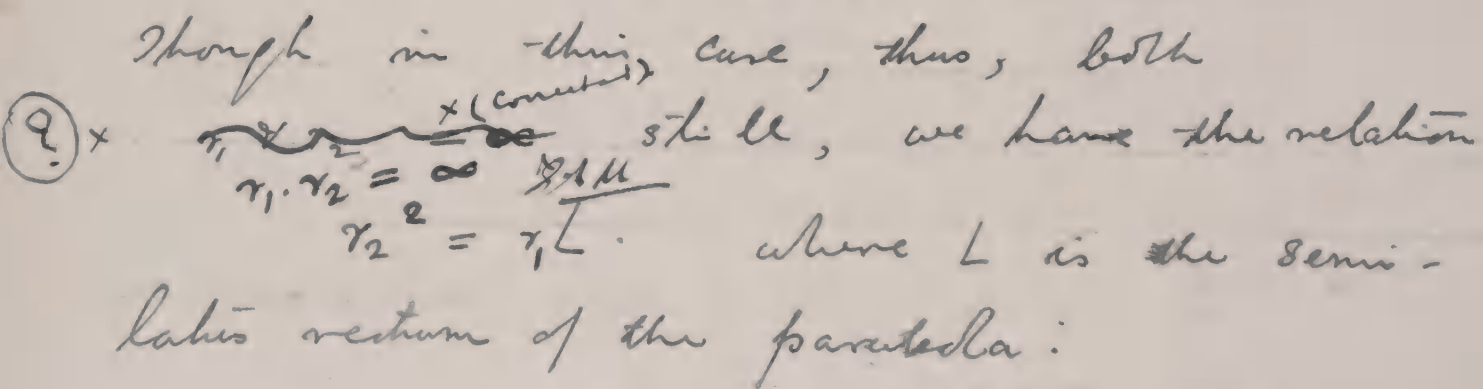 Though in this case, thus, both
? × r₁ × r₂ = ∞ × (corrected) still, we have the relation
r₁. r₂ = ∞ still
r₂² = r₁L. where L is the semi-
latus rectum of the parabola: